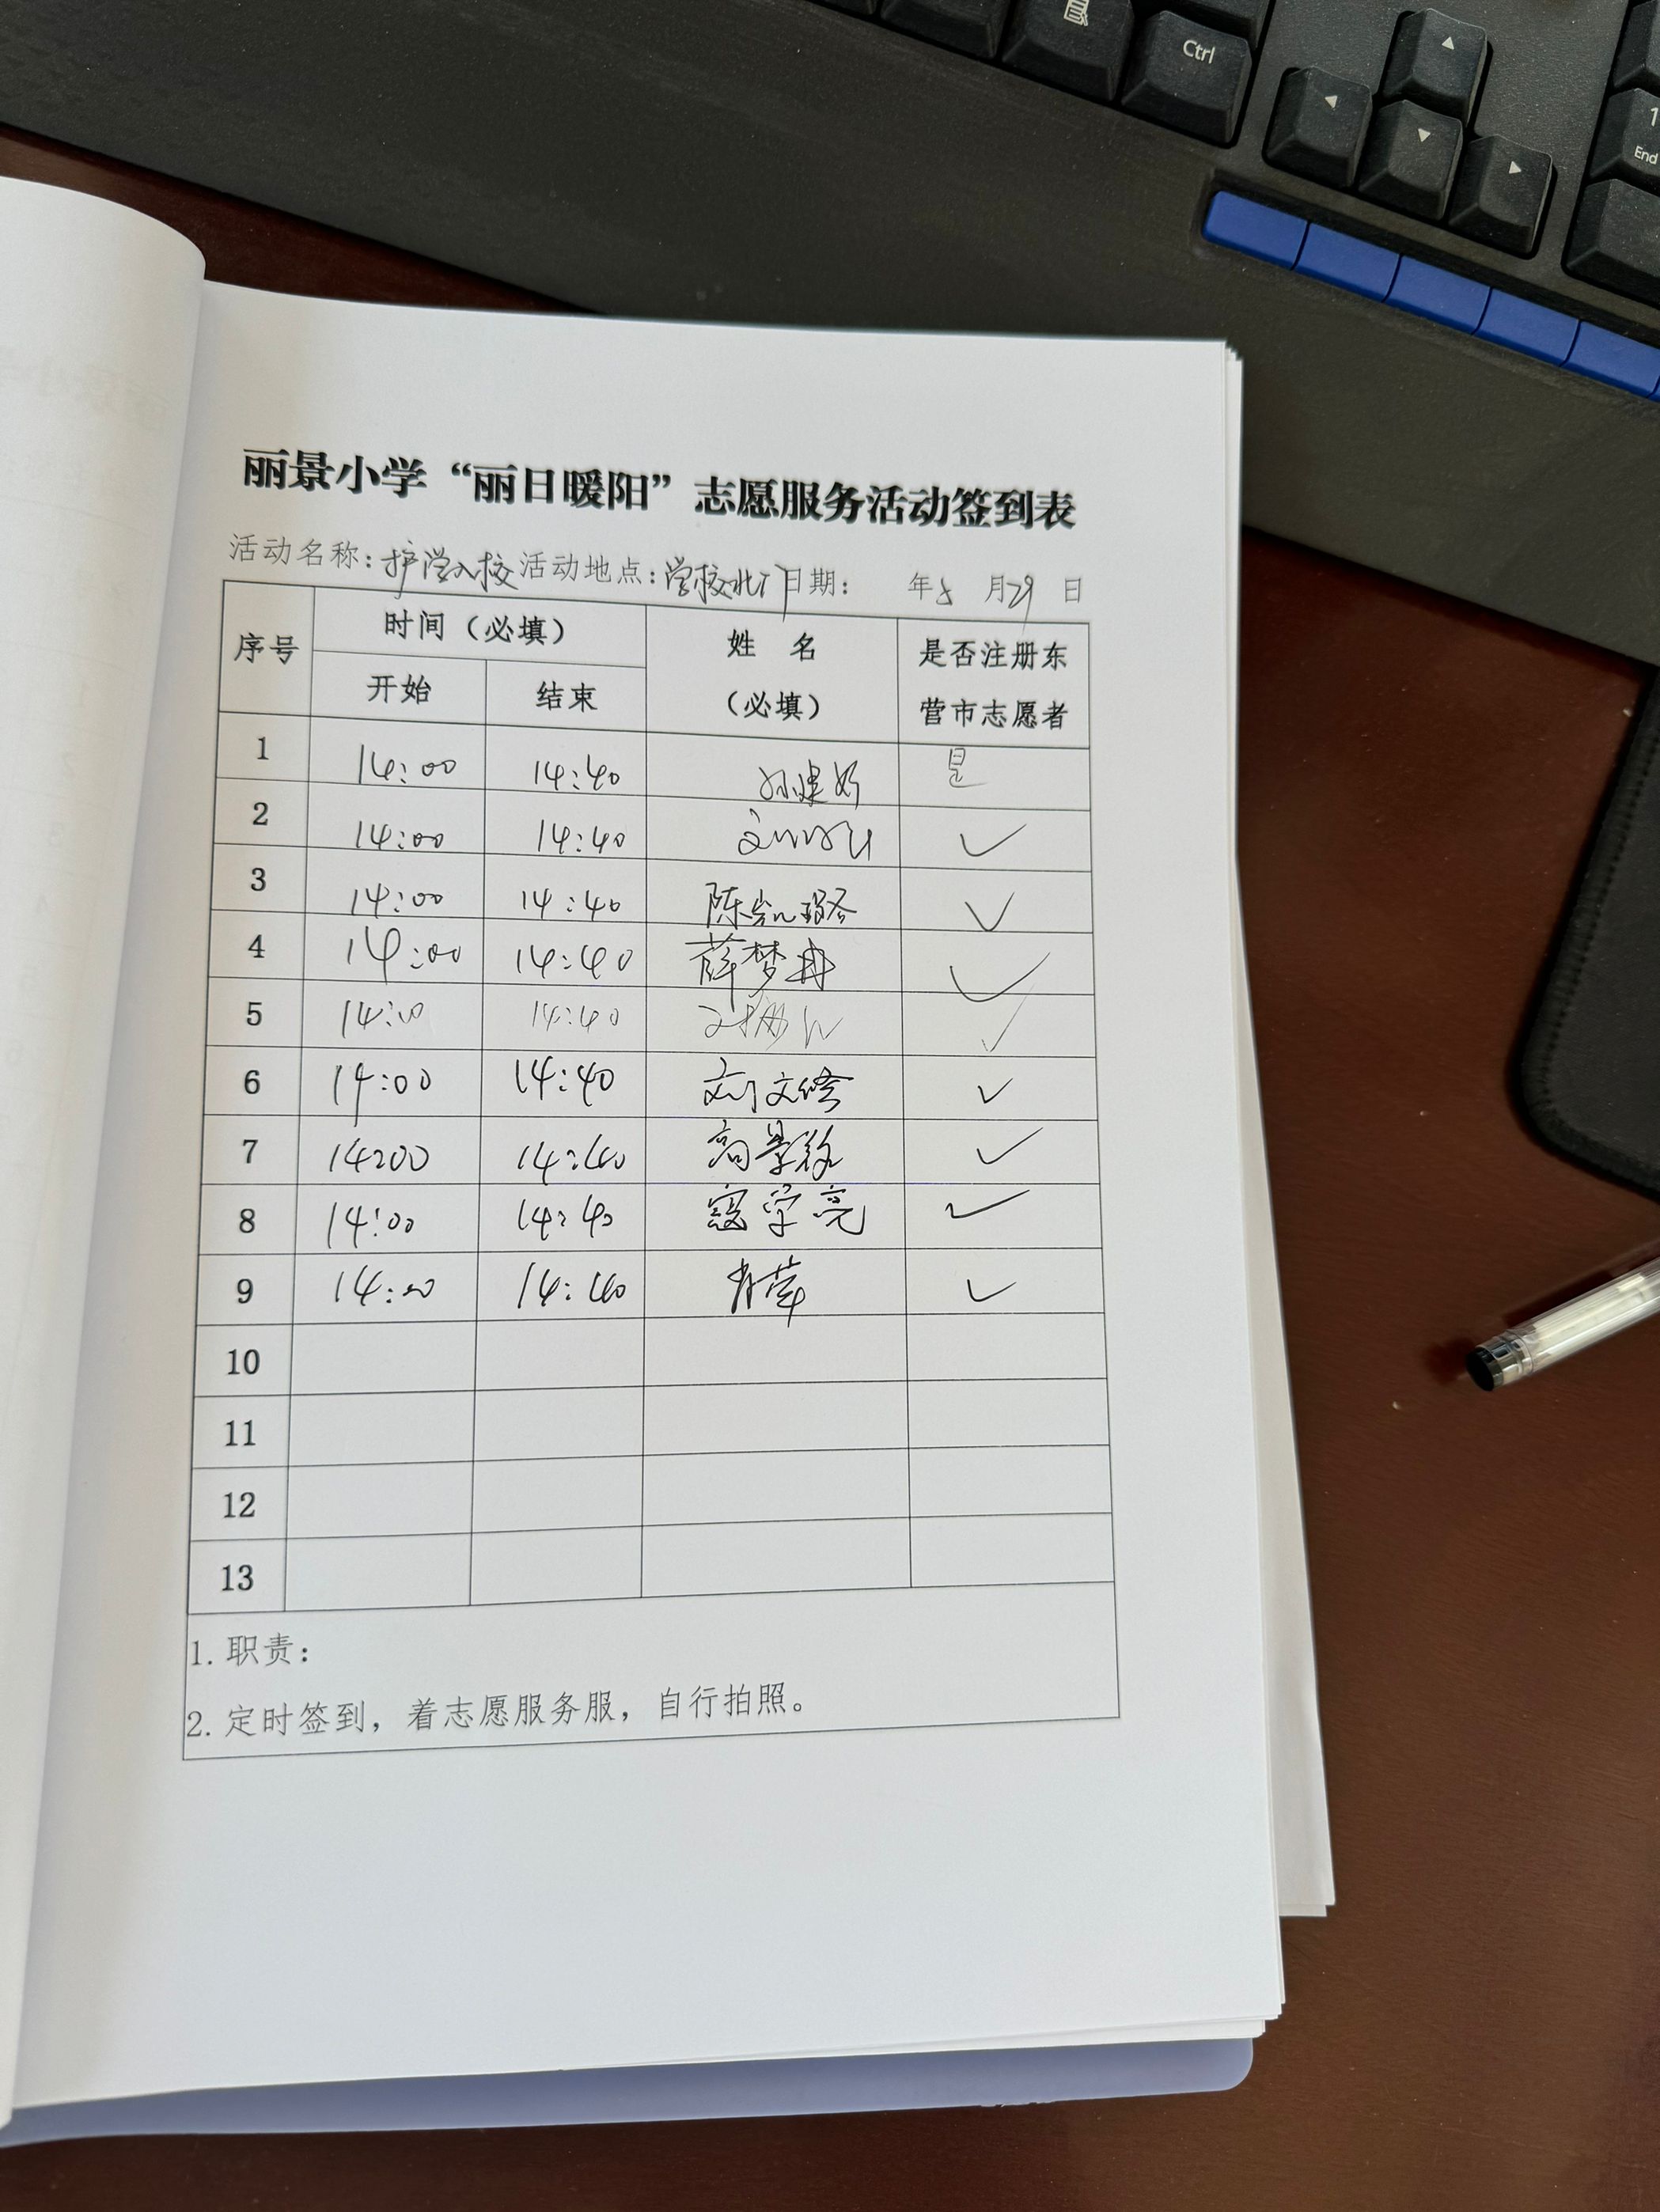 Ctrl
1
End
丽景小学“丽日暖阳”志愿服务活动签到表
活动名称：护学入校 活动地点：学校北门 日期： 年5月29日
序号 时间（必填） 姓 名（必填） 是否注册东营市志愿者
开始 结束
1 14:00 14:40 孙建娇 是
2 14:00 14:40 ✓
3 14:00 14:40 陈凯璐 ✓
4 14:00 14:40 薛梦冉 ✓
5 14:00 14:40 ✓
6 14:00 14:40 刘文修 ✓
7 14:00 14:40 高景 ✓
8 14:00 14:40 寇学亮 ✓
9 14:00 14:40 肖莹 ✓
10
11
12
13
1. 职责：
2. 定时签到，着志愿服务服，自行拍照。